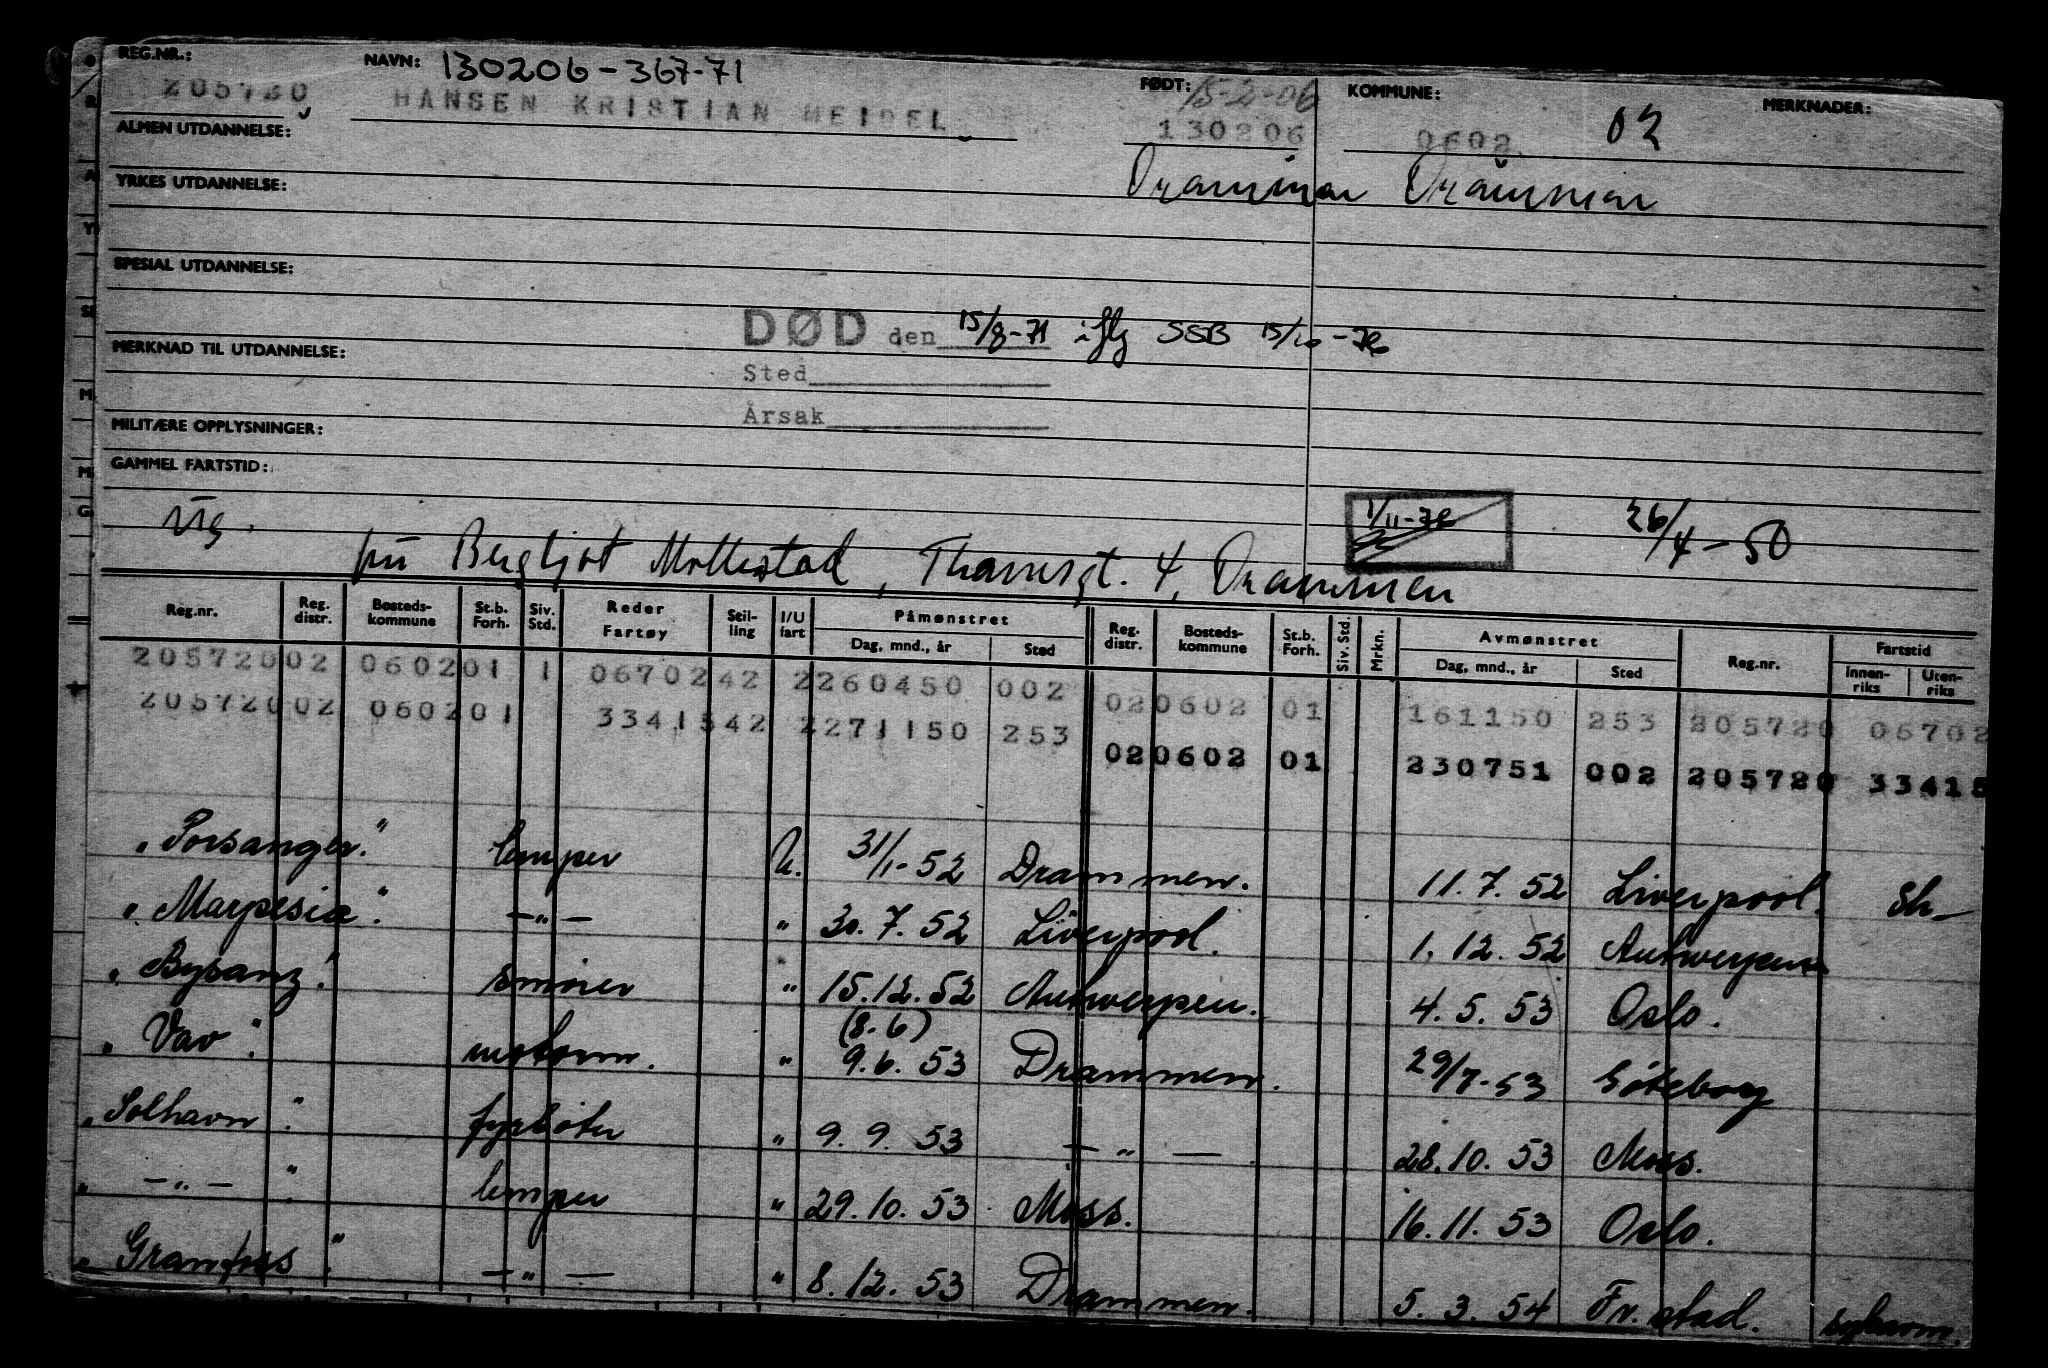 REG.NR.: NAVN: 130206-367-71 FØDT: 15-2-06 KOMMUNE: MERKNADER:
205720 HANSEN KRISTIAN MEIDEL 130206 0602 02
ALMEN UTDANNELSE: Drammen Drammen
YRKES UTDANNELSE:
SPESIAL UTDANNELSE:
DØD den 15/8-71 iflg SSB 15/10-76
MERKNAD TIL UTDANNELSE: Sted
Årsak
MILITÆRE OPPLYSNINGER:
GAMMEL FARTSTID:
1/11-76 26/4-50
Ug. pu Bergljot Mollestad, Thamsgt. 4, Drammen
Reg.nr. Reg. distr. Bosteds-kommune St.b. Forh. Siv. Std. Reder Fartøy Stil-ling I/U fart Påmønstret Dag, mnd., år Sted Reg. distr. Bosteds-kommune St.b. Forh. Siv. Std. Mrkn. Avmønstret Dag, mnd., år Sted Reg.nr. Fartstid Innen-riks Uten-riks
205720 02 0602 01 1 06702 42 2 260450 002 02 0602 01 161150 253 205720 06702
205720 02 0602 01 33415 42 2 271150 253 02 0602 01 230751 002 205720 33415
"Porsanger." lemper U. 31/1-52 Drammen. 11.7.52 Liverpool. Sh-
"Marpesia". -"- " 30.7.52 Liverpool. 1.12.52 Antwerpen
"Bysanz". smører " 15.12.52 Antwerpen. 4.5.53 Oslo.
(8.6)
"Vav". motorm. " 9.6.53 Drammen. 29/7-53 Göteborg
"Solhavn". fyrbøter " 9.9.53 -"-. 28.10.53 Moss.
"-"-". lemper " 29.10.53 Moss. 16.11.53 Oslo.
"Granfoss". -"- " 8.12.53 Drammen. 5.3.54 Fr.stad. sykdom.